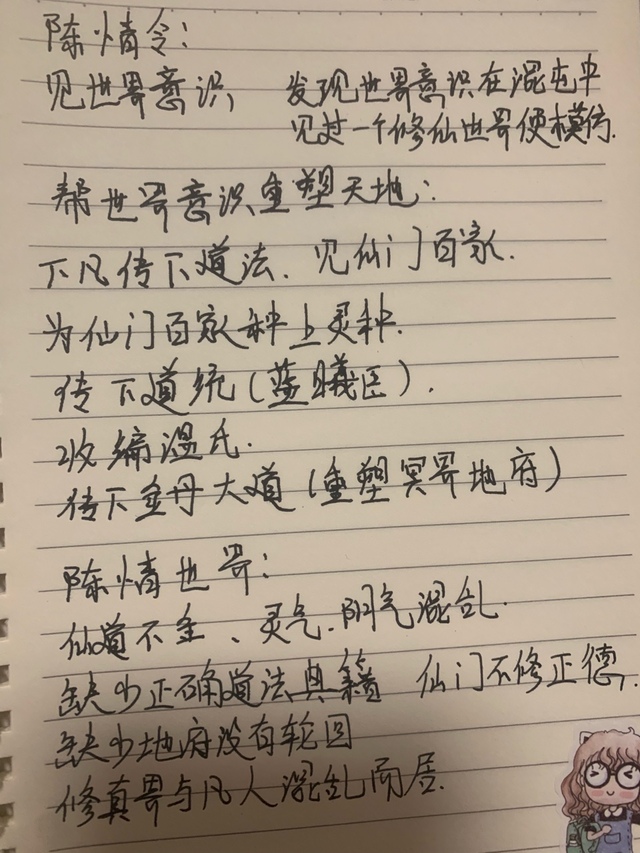 陈情令：
见世界意识 发现世界意识在混屯中
见过一个修仙世界便模仿.
帮世界意识重塑天地：
下凡传下道法、见仙门百家.
为仙门百家种上灵种.
传下道统（蓝曦臣）.
收编温氏.
传下金丹大道（重塑冥界地府）
陈情世界：
仙道不全、灵气、阴气混乱.
缺少正确道法典籍 仙门不修正德.
缺少地府没有轮回
修真界与凡人混乱而居.